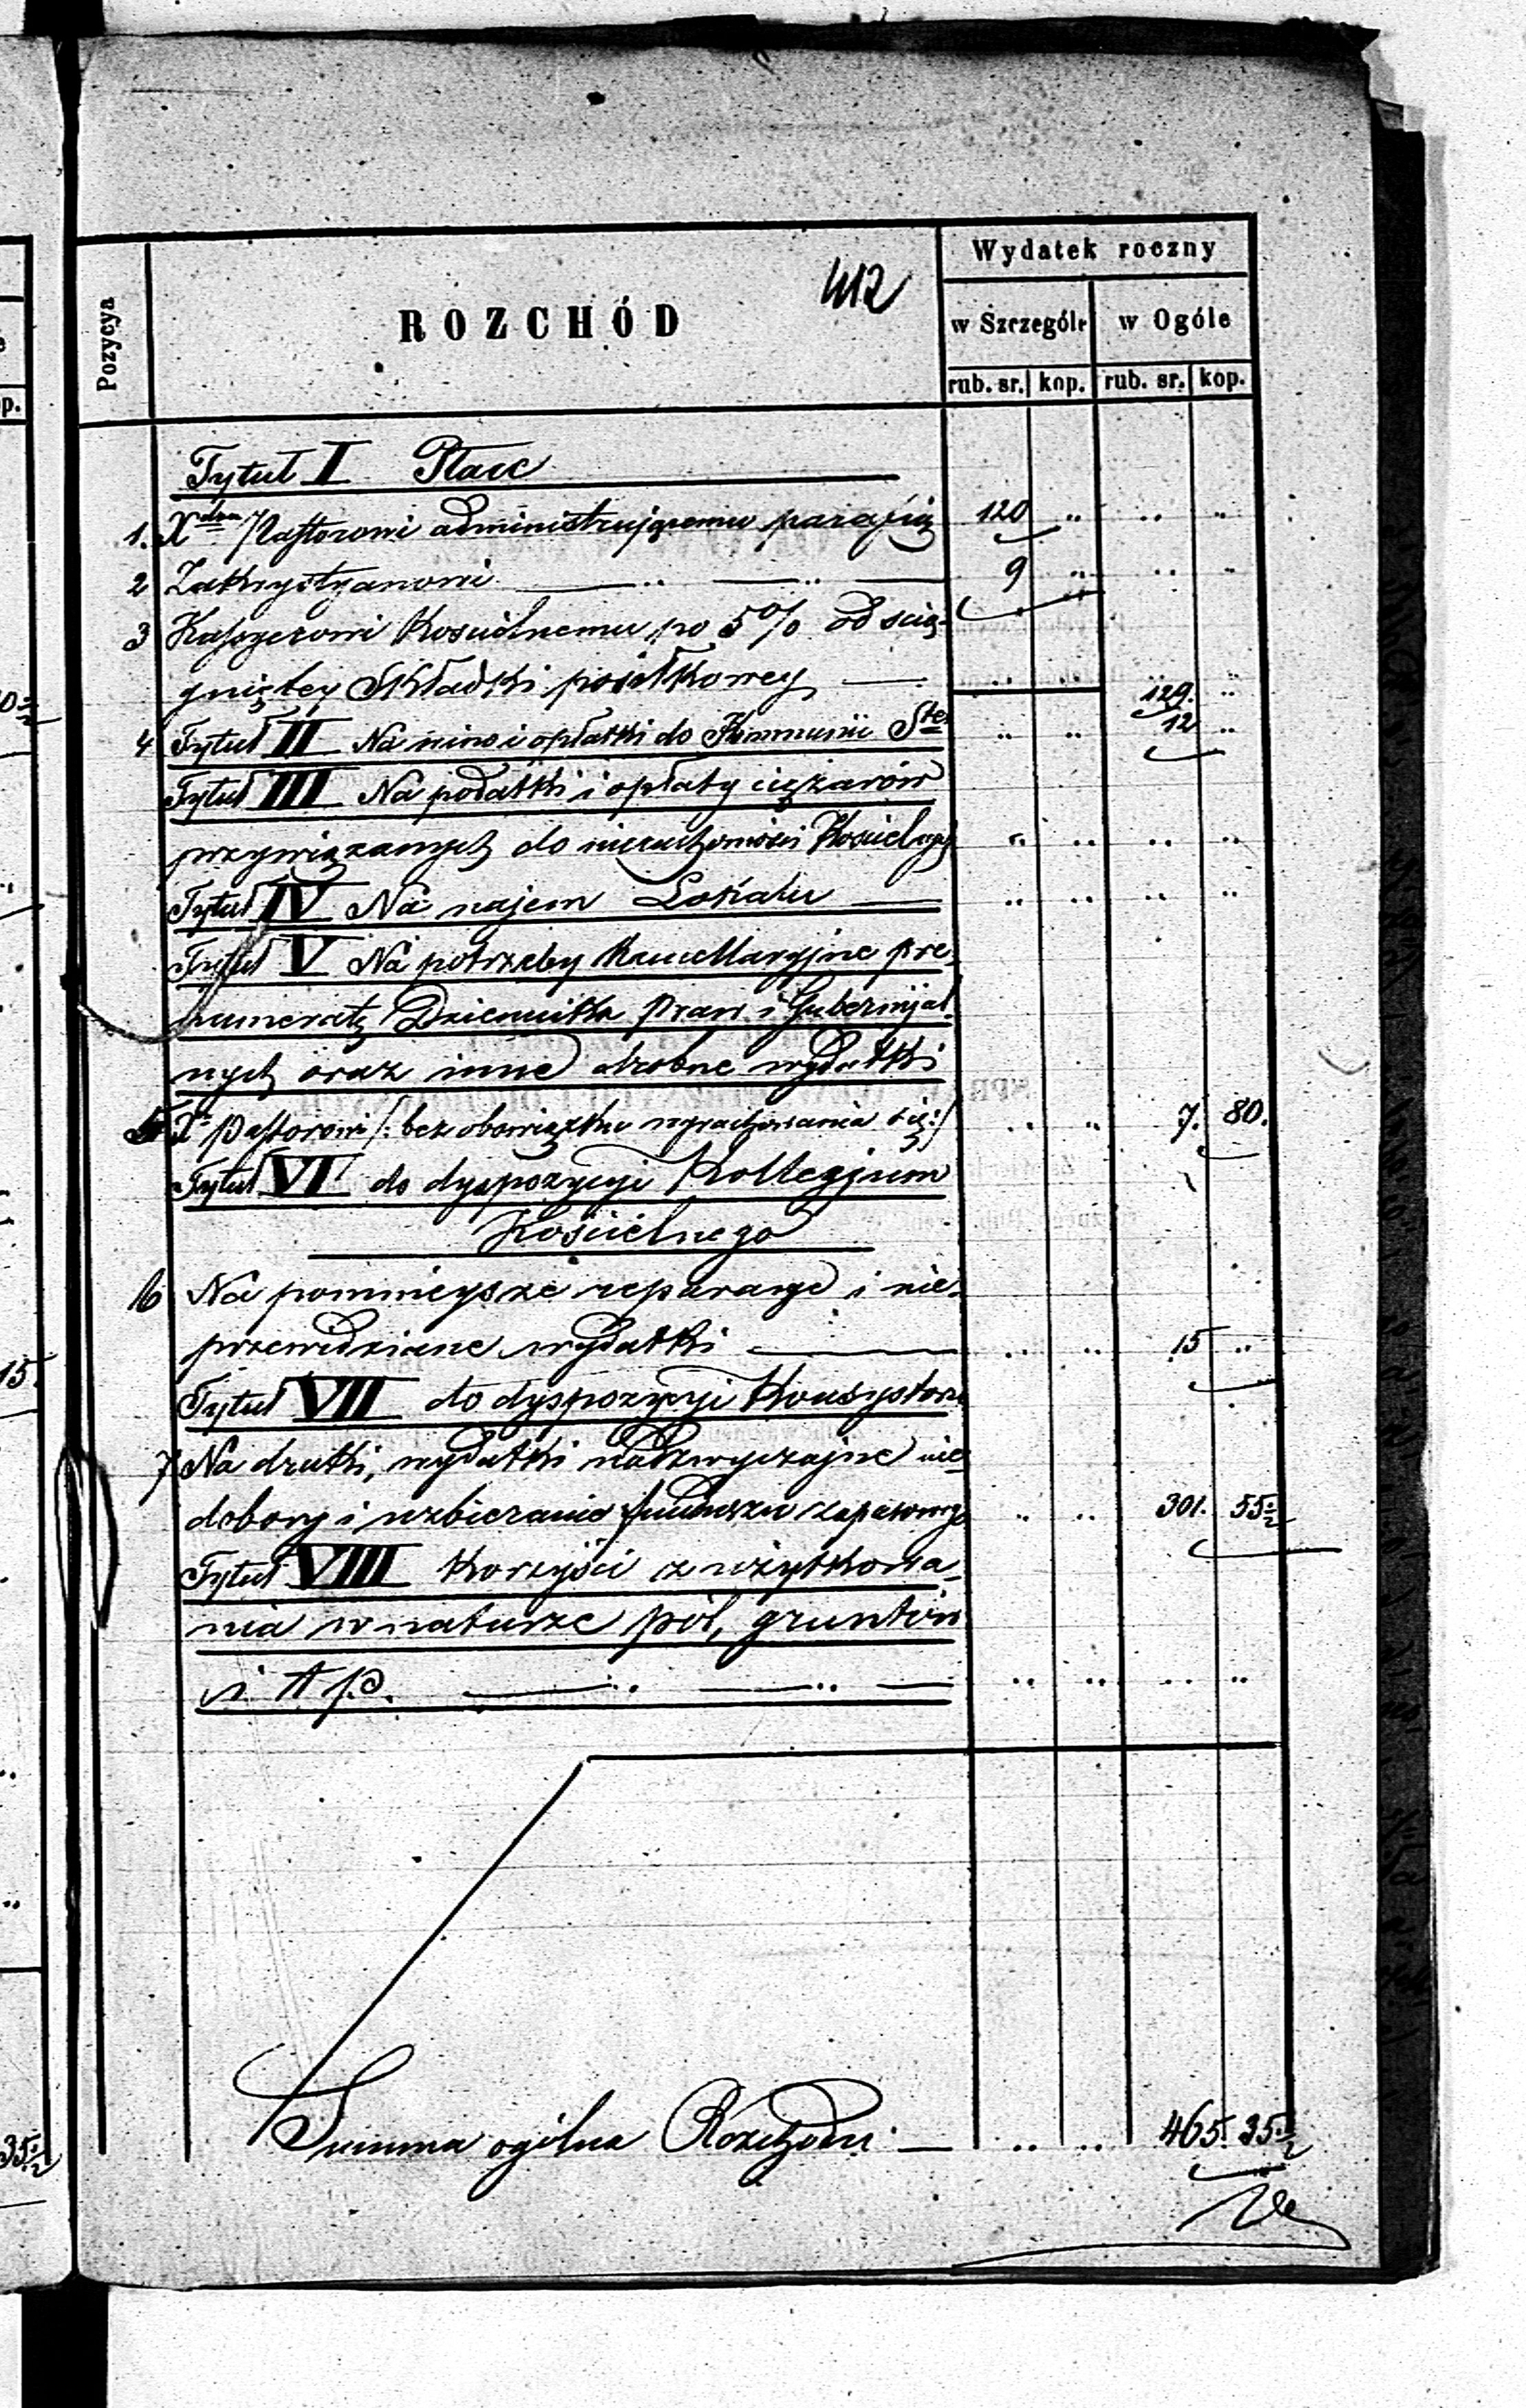 412
Wydatek roczny
Pozycya
ROZCHÓD
w Szczególe w Ogóle
rub. sr. kop. rub. sr. kop.
Tytuł I Płace
1. Xdzu Pastorowi administrującemu parafią 120 .. .. ..
2 Zakrystyanowi 9 .. .. ..
3 Kassyerowi Kościelnemu po 5% od ścią-
gniętey Składki posiłkowey .. .. 129. ..
4 Tytuł II Na wino i opłatki do Kommunii Stej .. .. 12 ..
Tytuł III Na podatki i opłaty ciężarów
przywiązanych do nieruchomości Kościelnej .. .. .. ..
Tytuł IV Na najem Lokalu .. .. .. ..
Tytuł V Na potrzeby Kancellaryjne pre-
numeratę Dziennika Praw i Gubernjal
nych oraz inne drobne wydatki
5 X. Pastorowi /: bez obowiązku wyrachowania się :/ .. .. 7. 80.
Tytuł VI do dyspozycyi Kollegjum
Kościelnego
6 Na pommieysze reparacye i nie-
przewidziane wydatki .. .. 15 ..
Tytuł VII do dyspozycyi Konsystorza
7 Na druki, wydatki nadzwyczajne nie-
dobory i uzbieranie funduszu zapasowego .. .. 301. 55 1/2
Tytuł VIII Korzyści z użytkowa-
nia w naturze pól, gruntów
i t. p. .. .. .. ..
Summa ogólna Rozchodu .. .. 465. 35 1/2